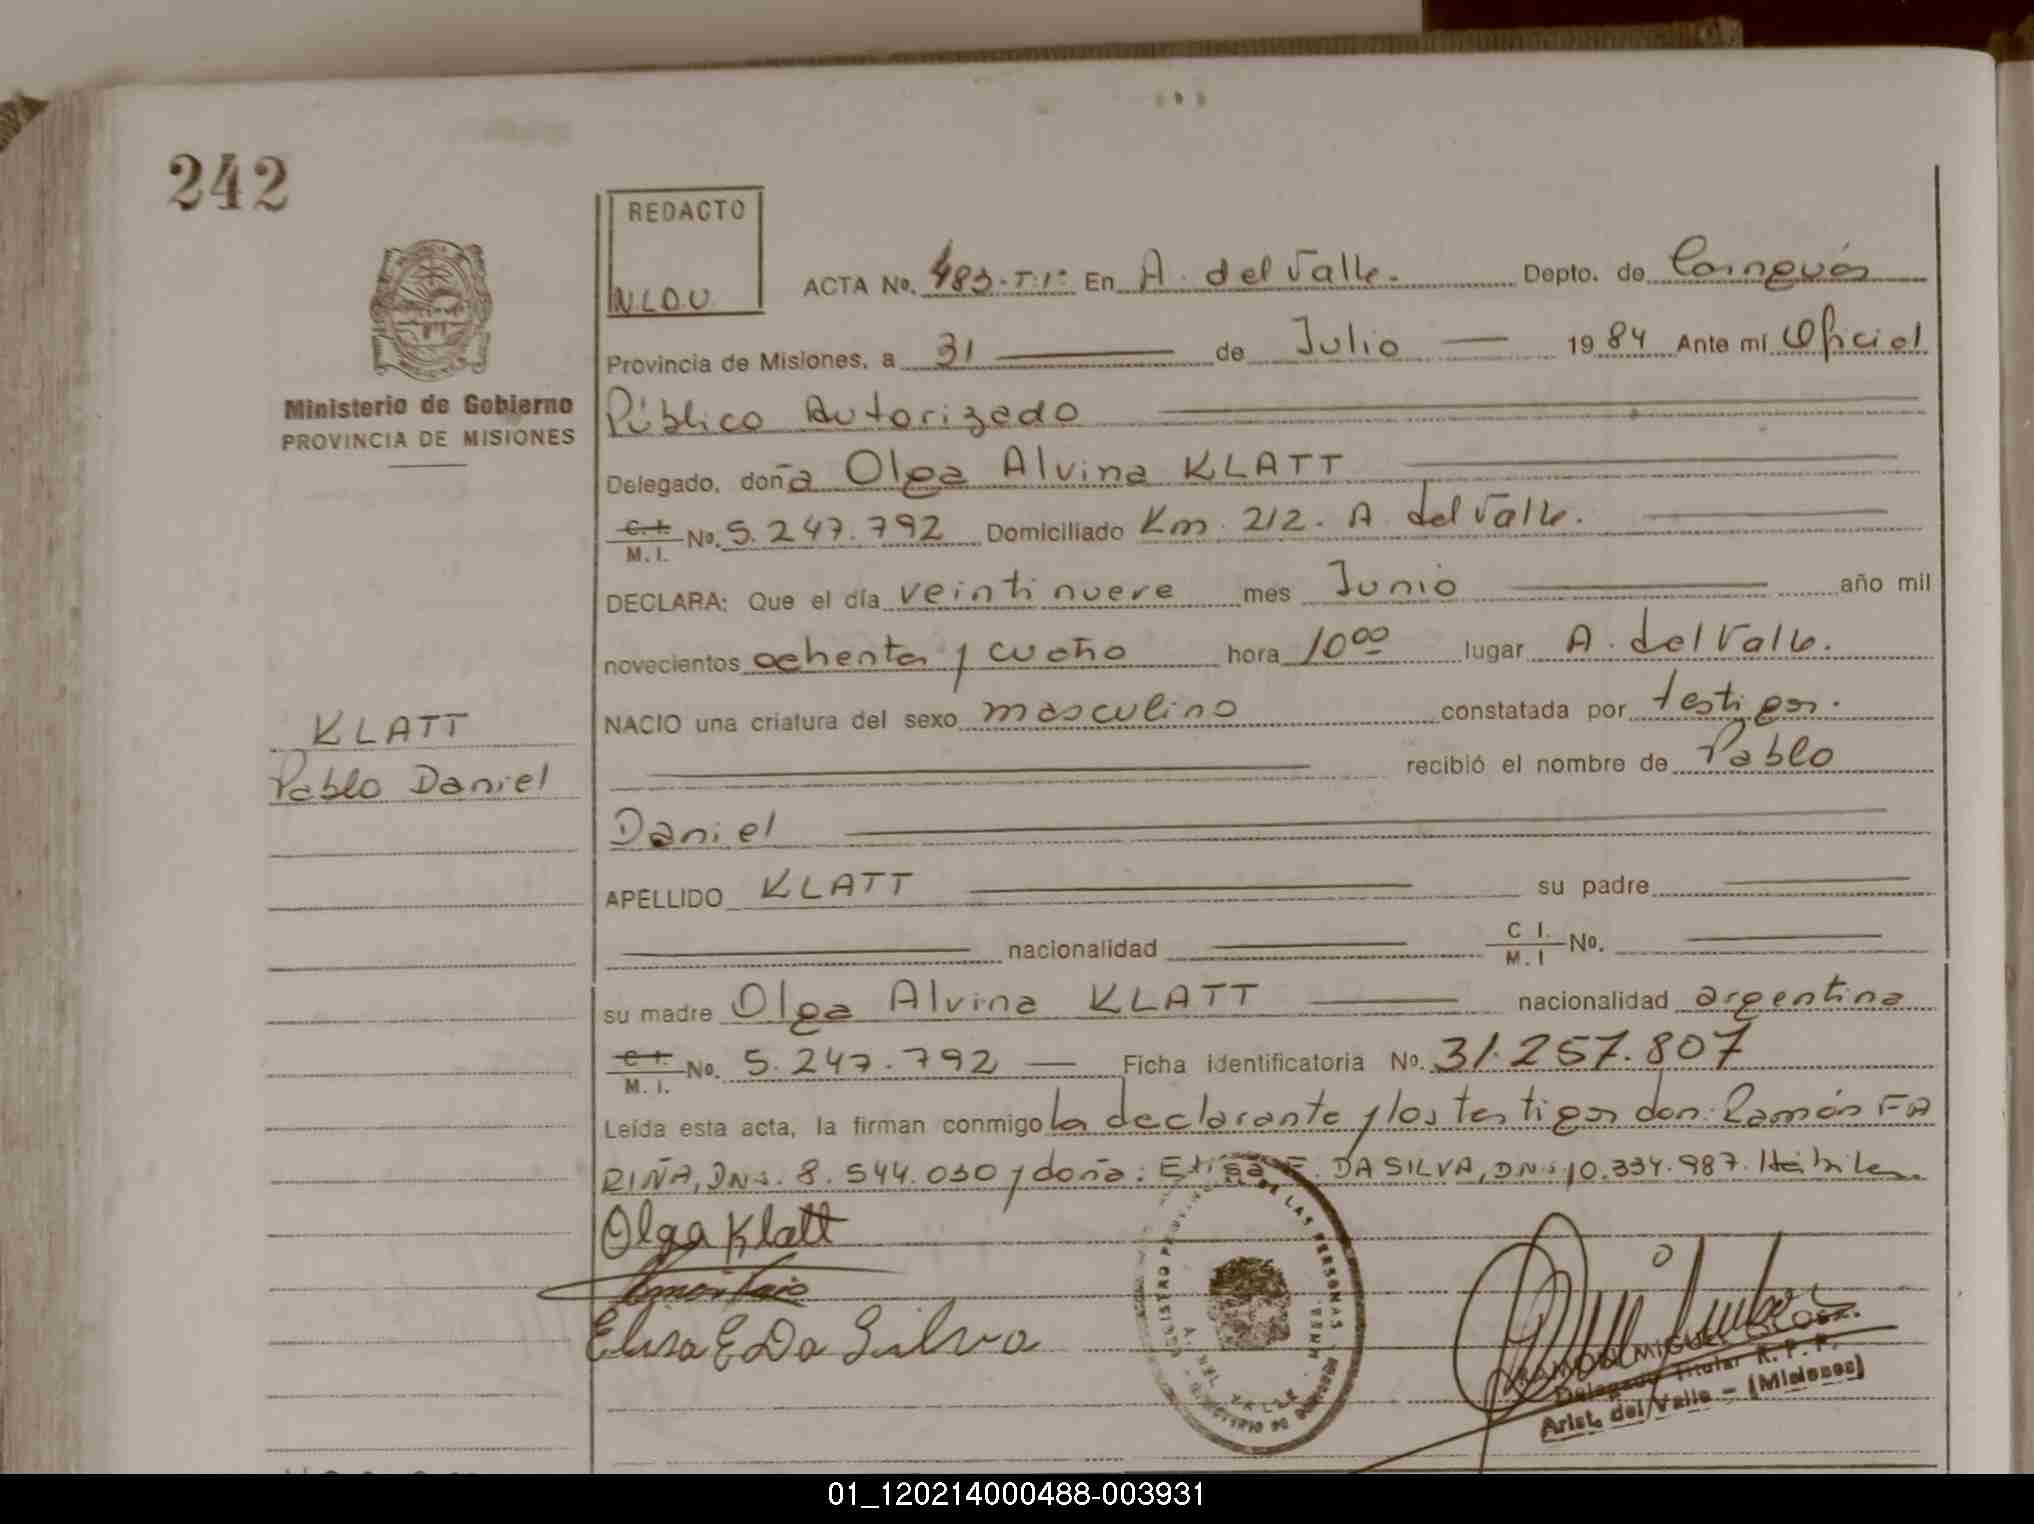 242
REDACTO
N.L.O.U.
ACTA No. 483-T:1º En A. del Valle. Depto. de Cainguás
Provincia de Misiones, a 31 de Julio 1984 Ante mí Oficial
Ministerio de Gobierno
PROVINCIA DE MISIONES
Público Autorizado
Delegado, doña Olga Alvina KLATT
C. I. M. I. No. 5.247.792 Domiciliado Km. 212. A. del Valle.
DECLARA: Que el día veintinueve mes Junio año mil
novecientos ochenta y cuatro hora 10⁰⁰ lugar A. del Valle.
NACIO una criatura del sexo masculino constatada por testigos.
KLATT
Pablo Daniel
recibió el nombre de Pablo
Daniel
APELLIDO KLATT su padre
nacionalidad C I. M. I No.
su madre Olga Alvina KLATT nacionalidad argentina
C I. M. I. No. 5.247.792 Ficha identificatoria No. 31.257.807
Leída esta acta, la firman conmigo la declarante y los testigos don: Ramón FA
RIÑA, DNI. 8.544.030 y doña: Elisa E. DA SILVA, DNI. 10.334.987. Hábiles.
Olga Klatt
Elisa E Da Silva
DE LAS PERSONAS
A. DEL VALLE
MIGUEL
Delegado Titular R. P. P.
Arist. del Valle - (Misiones)
01_120214000488-003931